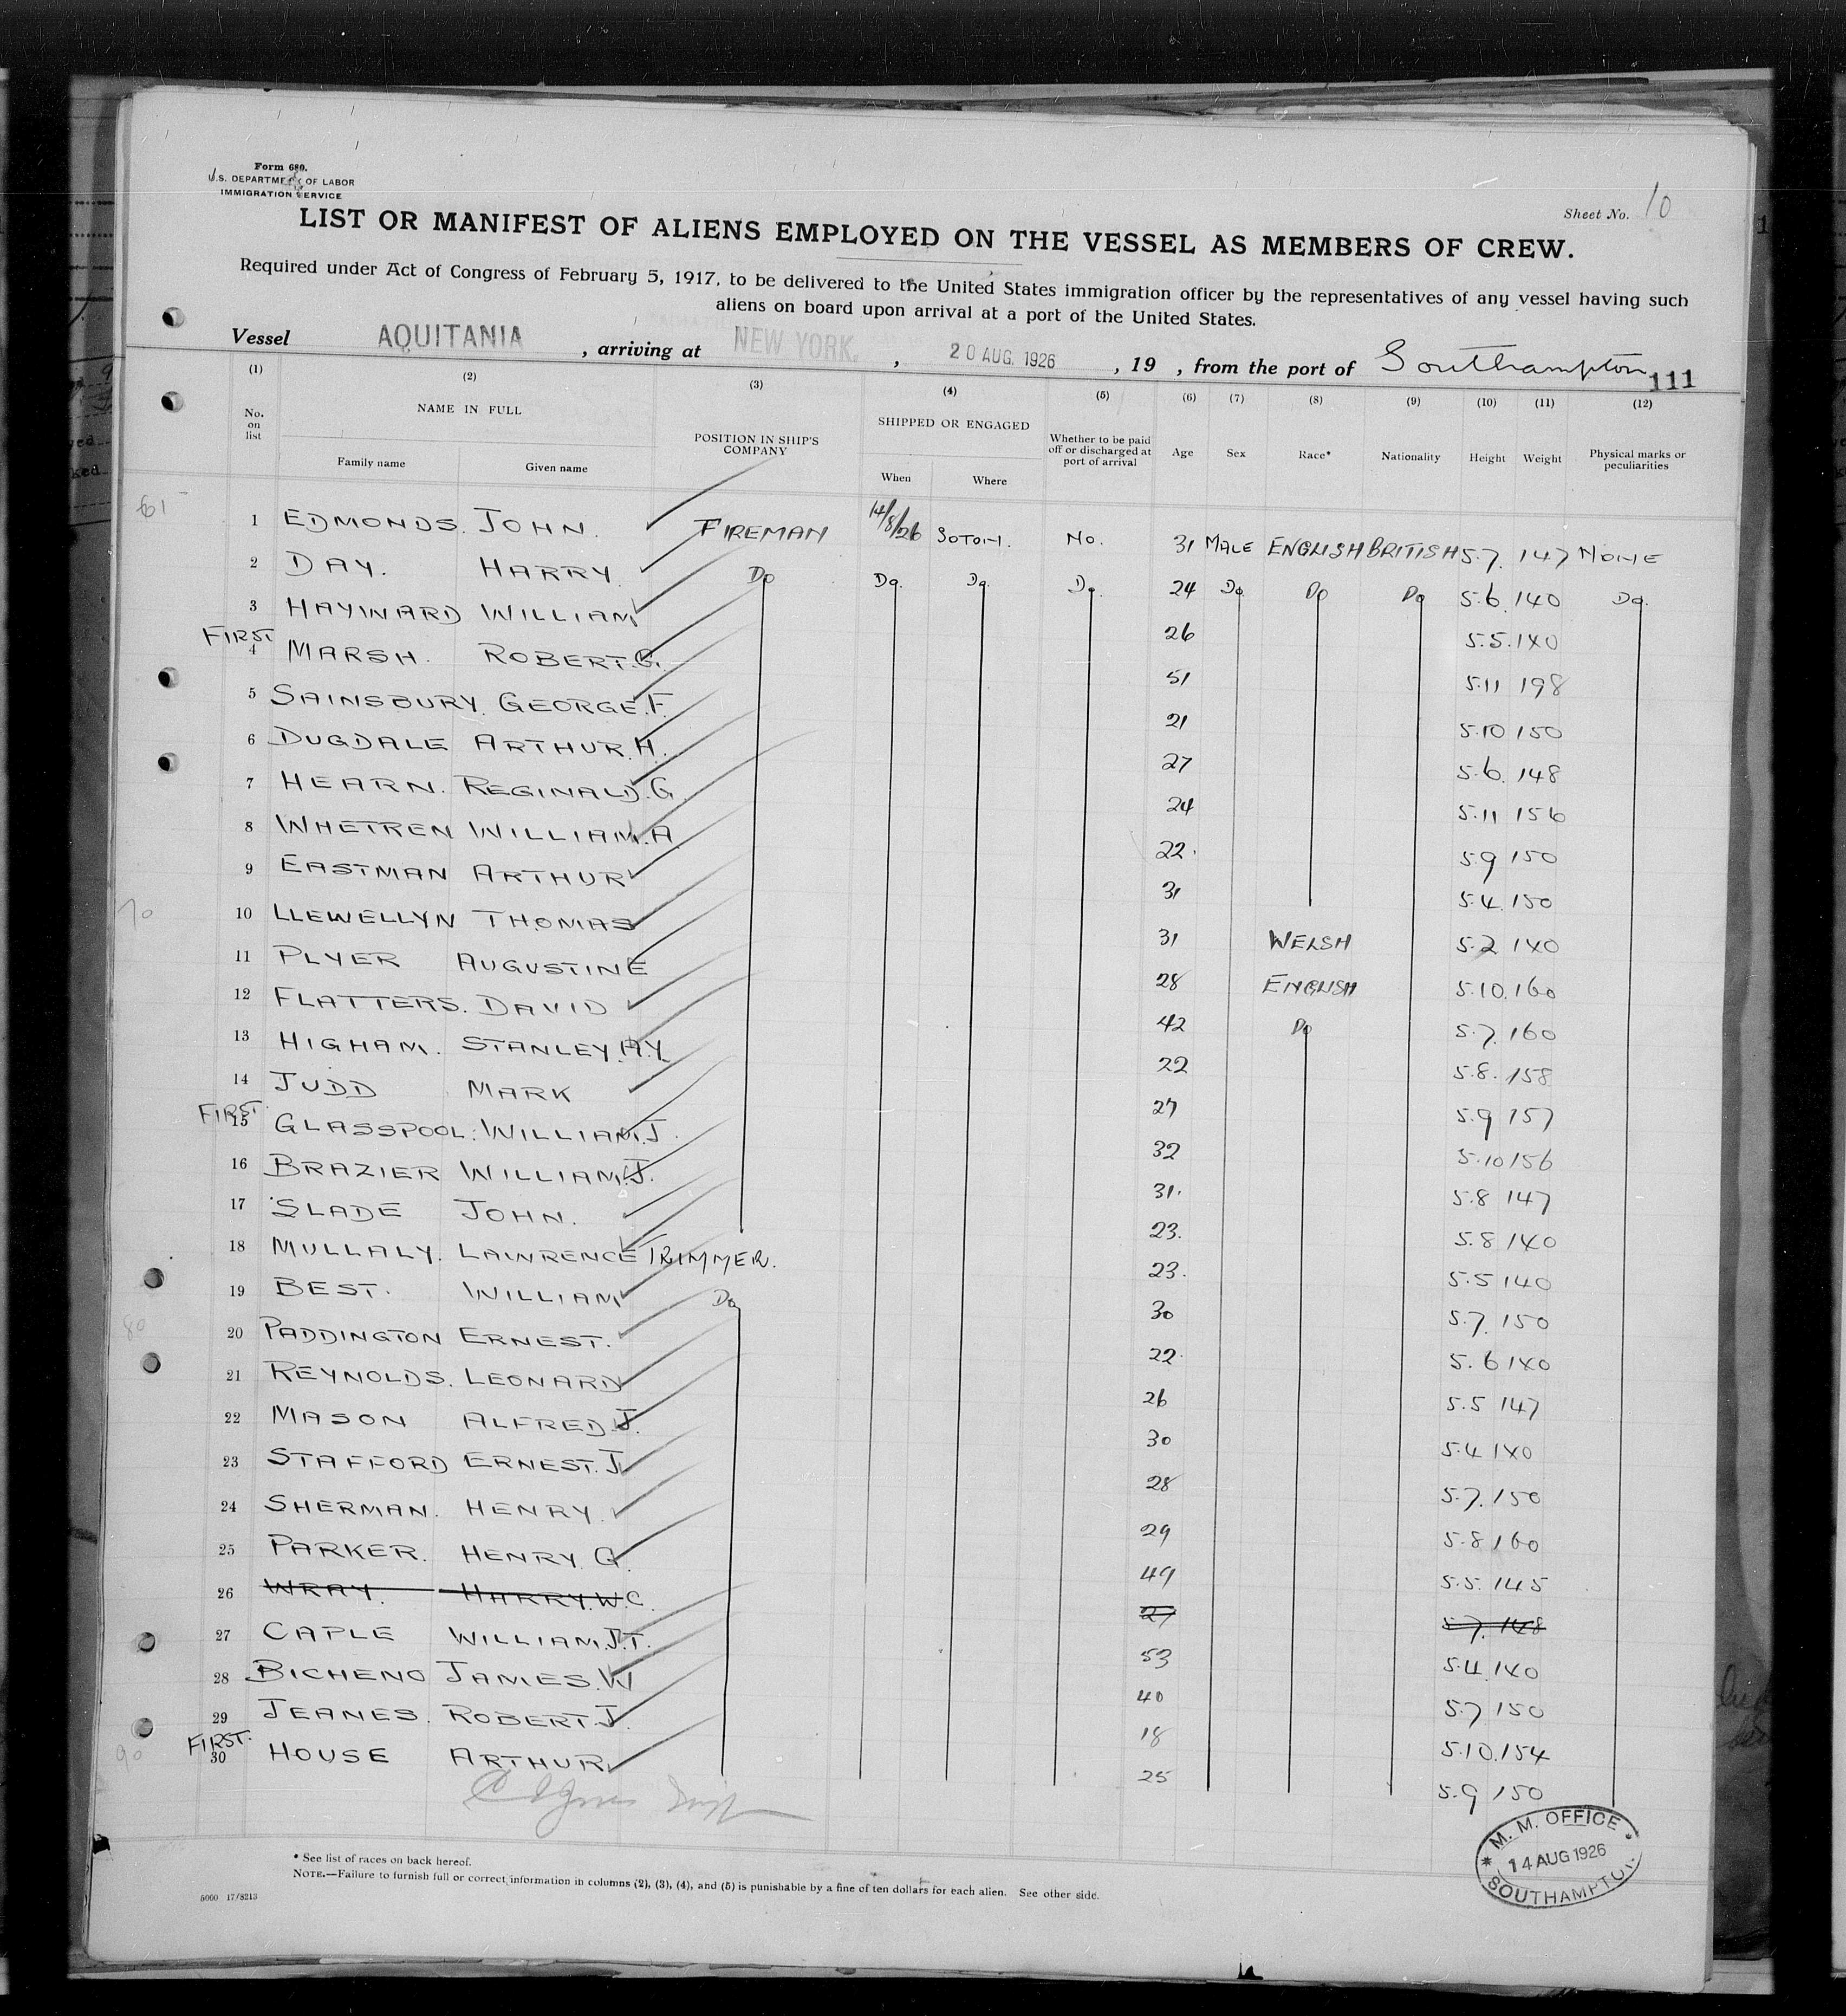 Form 680.
U.S. DEPARTMENT OF LABOR
IMMIGRATION SERVICE
Sheet No. 10
LIST OR MANIFEST OF ALIENS EMPLOYED ON THE VESSEL AS MEMBERS OF CREW.
Required under Act of Congress of February 5, 1917, to be delivered to the United States immigration officer by the representatives of any vessel having such
aliens on board upon arrival at a port of the United States.
Vessel AQUITANIA , arriving at NEW YORK. , 20 AUG. 1926 , 19 , from the port of Southampton 111
(1) (2) (3) (4) (5) (6) (7) (8) (9) (10) (11) (12)
No. on list NAME IN FULL Family name Given name POSITION IN SHIP'S COMPANY SHIPPED OR ENGAGED When Where Whether to be paid off or discharged at port of arrival Age Sex Race* Nationality Height Weight Physical marks or peculiarities
61
1 EDMONDS. JOHN. FIREMAN 14/8/26 SOTON. No. 31 MALE ENGLISH BRITISH 5.7. 147 NONE
2 DAY. HARRY. Do Do. Do. Do. 24 Do Do Do 5.6. 140 Do.
3 HAYWARD WILLIAM 26 5.5. 140
FIRST 4 MARSH. ROBERT.G. 51 5.11 198
5 SAINSBURY. GEORGE.F. 21 5.10 150
6 DUGDALE ARTHUR.H. 27 5.6. 148
7 HEARN. REGINALD.G. 24 5.11 156
8 WHETREN WILLIAM.A 22. 5.9 150
9 EASTMAN ARTHUR 31 5.4. 150
70
10 LLEWELLYN THOMAS 31 WELSH 5.2 140
11 PLYER AUGUSTINE 28 ENGLISH 5.10. 160
12 FLATTERS. DAVID 42 Do 5.7. 160
13 HIGHAM. STANLEY.H.Y. 22 5.8. 158
14 JUDD MARK 27 5.9 157
FIRST. 15 GLASSPOOL. WILLIAM.J. 32 5.10 156
16 BRAZIER WILLIAM.J. 31. 5.8 147
17 SLADE JOHN. 23. 5.8 140
18 MULLALY. LAWRENCE TRIMMER. 23. 5.5 140
19 BEST. WILLIAM Do 30 5.7. 150
80
20 PADDINGTON ERNEST. 22. 5.6 140
21 REYNOLDS. LEONARD 26 5.5 147
22 MASON ALFRED.J. 30 5.4 140
23 STAFFORD ERNEST.J 28 5.7. 150
24 SHERMAN. HENRY. 29 5.8 160
25 PARKER. HENRY G 49 5.5. 145
26 WRAY. HARRY.W.C. 27 5.7. 148
27 CAPLE WILLIAM.J.T. 53 5.4. 140
28 BICHENO JAMES.W 40 5.7 150
29 JEANES. ROBERT.J. 18 5.10. 154
90
FIRST. 30 HOUSE ARTHUR 25 5.9 150
M. M. OFFICE
14 AUG 1926
SOUTHAMPTON
* See list of races on back hereof.
NOTE.—Failure to furnish full or correct information in columns (2), (3), (4), and (5) is punishable by a fine of ten dollars for each alien. See other side.
5000 17/8213